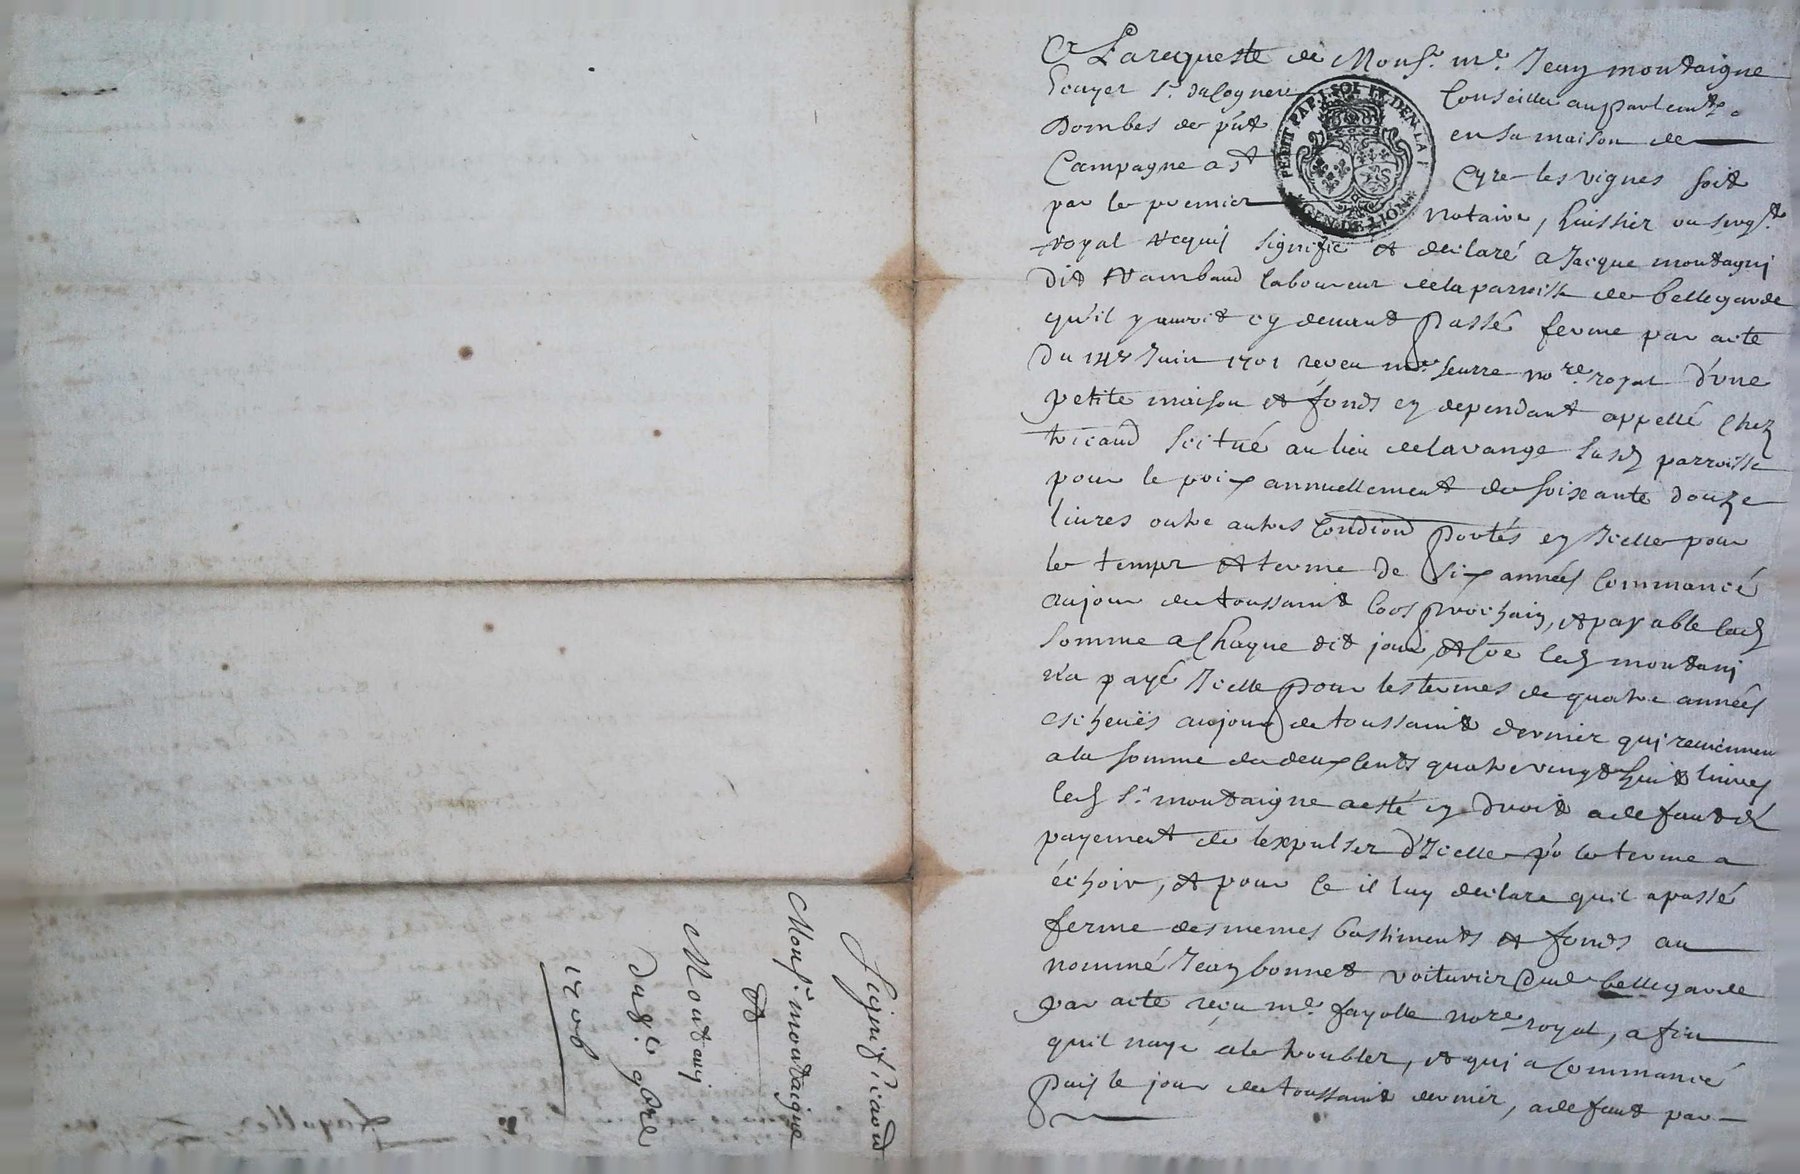 A La requeste de Mons.r m.e Jean montaigne
Ecuyer s.r Conseiller au parlem.t de
Dombes de p'nt en sa maison de
Campagne a S.t Cyre les vignes soit
par le premier notaire, huissier ou serg.t
royal requis signifié et declaré a Jacque montagni
dit Rambaud laboureur de la parroisse de bellegarde
qu'il y auroit cy devant passé ferme par acte
du 14e Juin 1701 receu m.e seurre no.re royal d'une
petite maison et fonds en dependant appellé chez
ricaud scitué au lieu de lavange susd parroisse
pour le prix annuellement de soixante douze
livres outre autres portés en Icelle pour
le temps et terme de six années commancé
au jour de toussaint lors prochain, et payable lad
somme a chaque dit jour, et led montani
n'a payé Icelle pour les termes de quatre années
escheuës au jour de toussaint dernier qui reviennen
a la somme de deux cents quatre vingt huit livres
led s.r montaigne a esté en droit a defaut de
payement de lexpulser d'Icelle po le terme a
échoir, et pour ce il luy declare quil a passé
ferme des memes bastiments et fonds au
nommé Jean bonnet voiturier dud bellegarde
par acte reçu m.e fayolle no.re royal, afin
quil naye a le troubler, et qui a commancé
puis le jour de toussaint dernier, a defaut par
PETIT PAP. 1 SOL ET DEN. LA F
GEN. DE LION
Signiffica.on
Mons.r montaigne
et
Montany
Du 8.bre
1706
fayolle